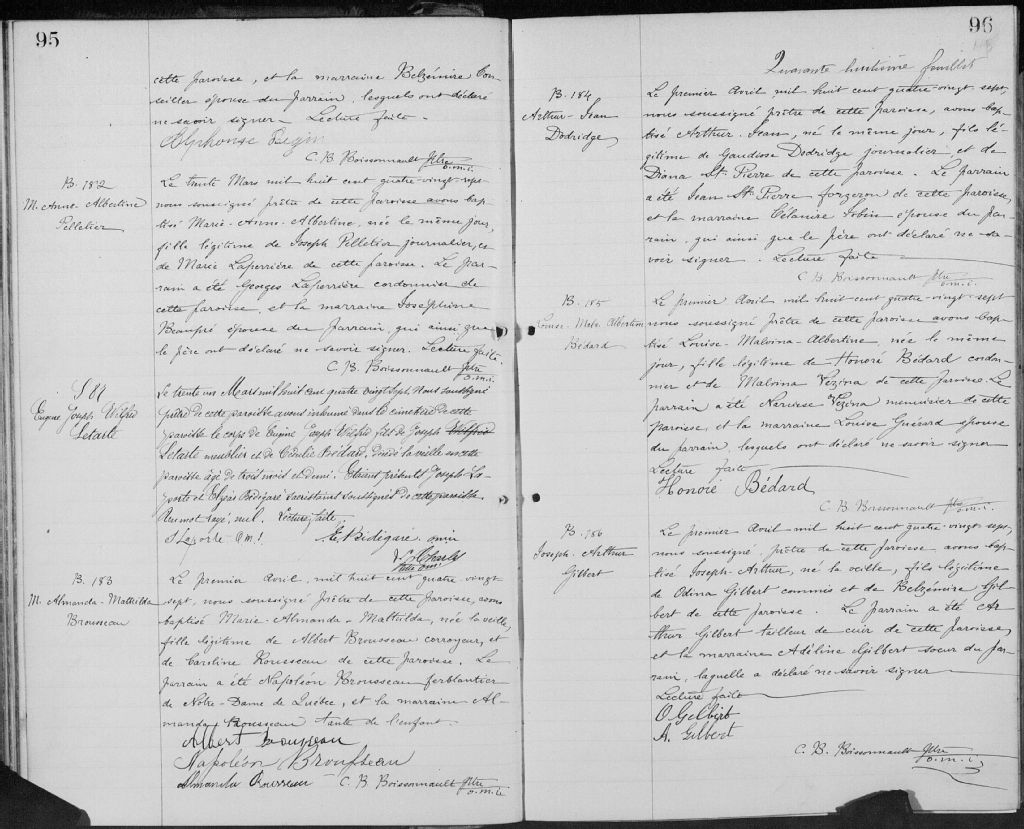 95
cette paroisse, et la marraine Belzémire Con-
seiller épouse du parrain, lesquels ont déclaré
ne savoir signer. Lecture faite.
Alphonse
C. B. Boissonnault Ptre
o.m.i.
B. 182
M. Anne-Albertine
Pelletier
Le trente Mars mil huit cent quatre-vingt-sept
nous soussigné prêtre de cette paroisse avons bap-
tisé Marie-Anne-Albertine, née le même jour,
fille légitime de Joseph Pelletier journalier, et
de Marie Laperrière de cette paroisse. Le par-
rain a été Georges Laperrière cordonnier de
cette paroisse, et la marraine Joséphine
Beaupré épouse du parrain, qui ainsi que
le père ont déclaré ne savoir signer. Lecture faite.
C. B. Boissonnault Ptre
o.m.i.
Eugène Joseph Wilfrid
Letarte
Le trente un Mars mil huit cent quatre vingt sept, Nous soussigné
prêtre de cette paroisse avons inhumé dans le cimetière de cette
paroisse le corps de Eugène Joseph Wilfrid fils de Joseph Wilfrid
Letarte meublier et de Bédard, décédé la veille en cette
paroisse âgé de trois mois et demi. Etaient présents Joseph La-
porte et Elzéar Bidégaré sacristains soussignés de cette paroisse.
Un mot rayé nul. Lecture faite
J Laporte o.m.i. E. Bidégaré omi
Ptre omi
B. 183
M. Almanda-Mathilda
Brousseau
Le premier Avril, mil huit cent quatre vingt
sept, nous soussigné prêtre de cette paroisse, avons
baptisé Marie-Almanda-Mathilda, née la veille,
fille légitime de Albert Brousseau corroyeur, et
de Caroline Rousseau de cette paroisse. Le
parrain a été Napoléon Brousseau ferblantier
de Notre-Dame de Québec, et la marraine Al-
manda Brousseau tante de l'enfant.
Albert Brousseau
Napoléon Brousseau
Almanda C. B. Boissonnault Ptre
o.m.i.
96
Quarante huitième feuillet
B. 184
Arthur-Jean
Dodridge
Le premier Avril mil huit cent quatre-vingt sept,
nous soussigné prêtre de cette paroisse, avons bap-
tisé Arthur-Jean, né le même jour, fils lé-
gitime de Gaudiose Dodridge journalier et de
Diana St-Pierre de cette paroisse. Le parrain
a été Jean St-Pierre forgeron de cette paroisse,
et la marraine Célanire Jobin épouse du par-
rain, qui ainsi que le père ont déclaré ne sa-
voir signer. Lecture faite
C. B. Boissonnault Ptre
o.m.i.
B. 185
Louise-Malv. Albertine
Bédard
Le premier Avril mil huit cent quatre-vingt sept
nous soussigné prêtre de cette paroisse avons bap-
tisé Louise-Malvina-Albertine, née le même
jour, fille légitime de Honoré Bédard cordon-
nier et de Malvina Vézina de cette paroisse. Le
parrain a été Narcisse Vézina menuisier de cette
paroisse, et la marraine Louise Guérard épouse
du parrain, lesquels ont déclaré ne savoir signer
Lecture faite
Honoré Bédard
C. B. Boissonnault Ptre
o.m.i.
B. 186
Joseph-Arthur
Gilbert
Le premier Avril mil huit cent quatre-vingt-sept,
nous soussigné, prêtre de cette paroisse avons bap-
tisé Joseph-Arthur, né la veille, fils légitime
de Odina Gilbert commis et de Belzémire Gil-
bert de cette paroisse. Le parrain a été Ar-
thur Gilbert tailleur de cuir de cette paroisse,
et la marraine Adéline Gilbert sœur du par-
rain, laquelle a déclaré ne savoir signer
Lecture faite
O Gilbert
A. Gilbert
C. B. Boissonnault Ptre
o.m.i.